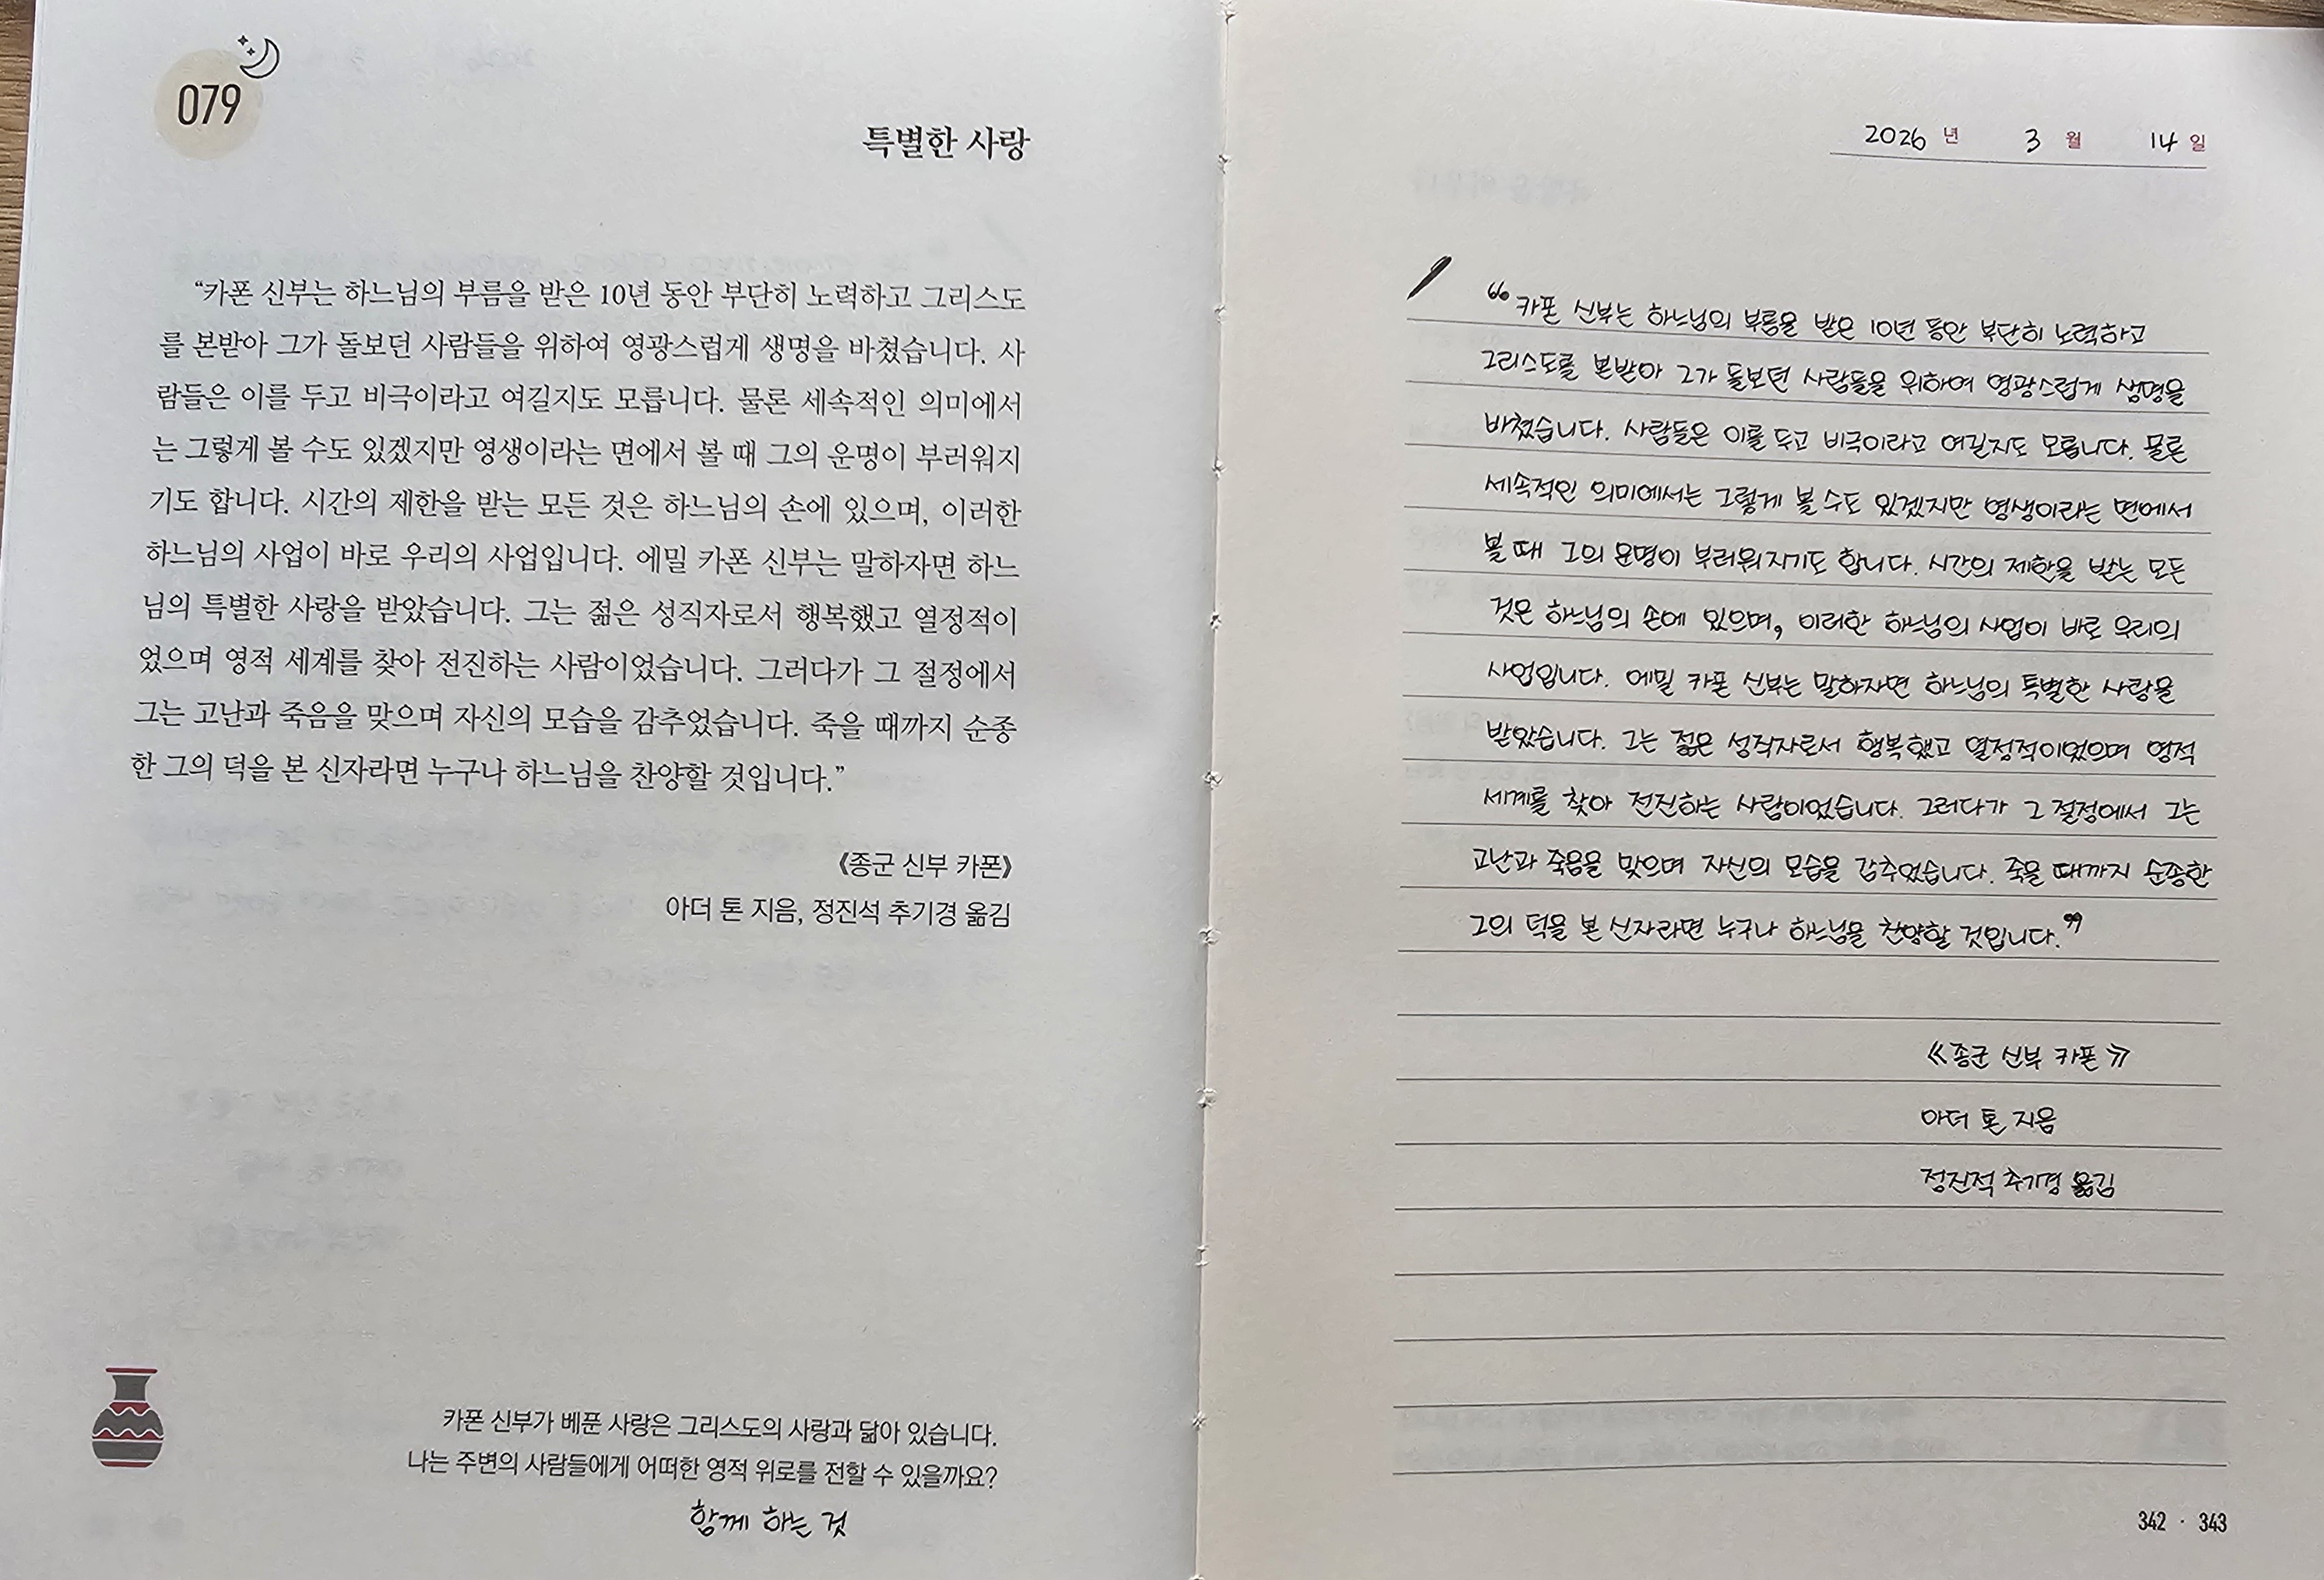 079
특별한 사랑
“카폰 신부는 하느님의 부름을 받은 10년 동안 부단히 노력하고 그리스도
를 본받아 그가 돌보던 사람들을 위하여 영광스럽게 생명을 바쳤습니다. 사
람들은 이를 두고 비극이라고 여길지도 모릅니다. 물론 세속적인 의미에서
는 그렇게 볼 수도 있겠지만 영생이라는 면에서 볼 때 그의 운명이 부러워지
기도 합니다. 시간의 제한을 받는 모든 것은 하느님의 손에 있으며, 이러한
하느님의 사업이 바로 우리의 사업입니다. 에밀 카폰 신부는 말하자면 하느
님의 특별한 사랑을 받았습니다. 그는 젊은 성직자로서 행복했고 열정적이
었으며 영적 세계를 찾아 전진하는 사람이었습니다. 그러다가 그 절정에서
그는 고난과 죽음을 맞으며 자신의 모습을 감추었습니다. 죽을 때까지 순종
한 그의 덕을 본 신자라면 누구나 하느님을 찬양할 것입니다.”
《종군 신부 카폰》
아더 톤 지음, 정진석 추기경 옮김
카폰 신부가 베푼 사랑은 그리스도의 사랑과 닮아 있습니다.
나는 주변의 사람들에게 어떠한 영적 위로를 전할 수 있을까요?
함께 하는 것
2026 년 3 월 14 일
“카폰 신부는 하느님의 부름을 받은 10년 동안 부단히 노력하고
그리스도를 본받아 그가 돌보던 사람들을 위하여 영광스럽게 생명을
바쳤습니다. 사람들은 이를 두고 비극이라고 여길지도 모릅니다. 물론
세속적인 의미에서는 그렇게 볼 수도 있겠지만 영생이라는 면에서
볼 때 그의 운명이 부러워지기도 합니다. 시간의 제한을 받는 모든
것은 하느님의 손에 있으며, 이러한 하느님의 사업이 바로 우리의
사업입니다. 에밀 카폰 신부는 말하자면 하느님의 특별한 사랑을
받았습니다. 그는 젊은 성직자로서 행복했고 열정적이었으며 영적
세계를 찾아 전진하는 사람이었습니다. 그러다가 그 절정에서 그는
고난과 죽음을 맞으며 자신의 모습을 감추었습니다. 죽을 때까지 순종한
그의 덕을 본 신자라면 누구나 하느님을 찬양할 것입니다.”
《종군 신부 카폰》
아더 톤 지음
정진적 추기경 옮김
342 · 343